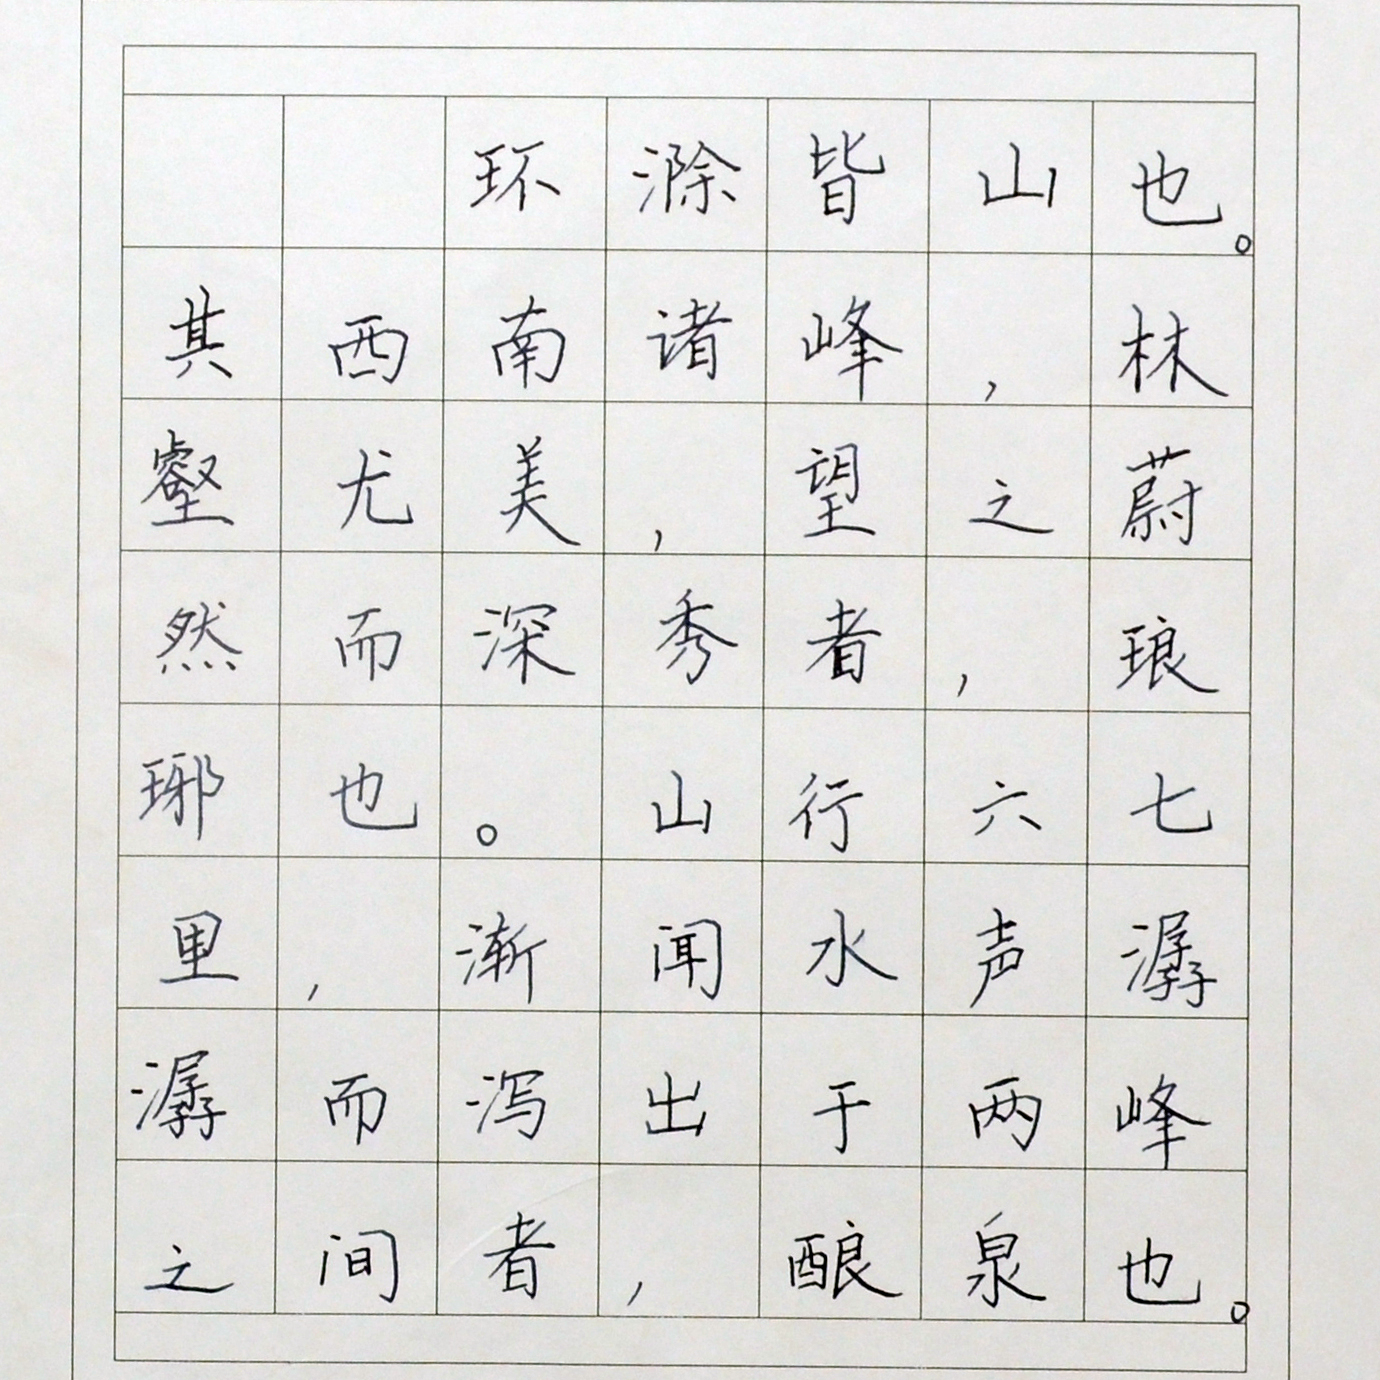 环滁皆山也。
其西南诸峰，林
壑尤美，望之蔚
然而深秀者，琅
琊也。山行六七
里，渐闻水声潺
潺而泻出于两峰
之间者，酿泉也。